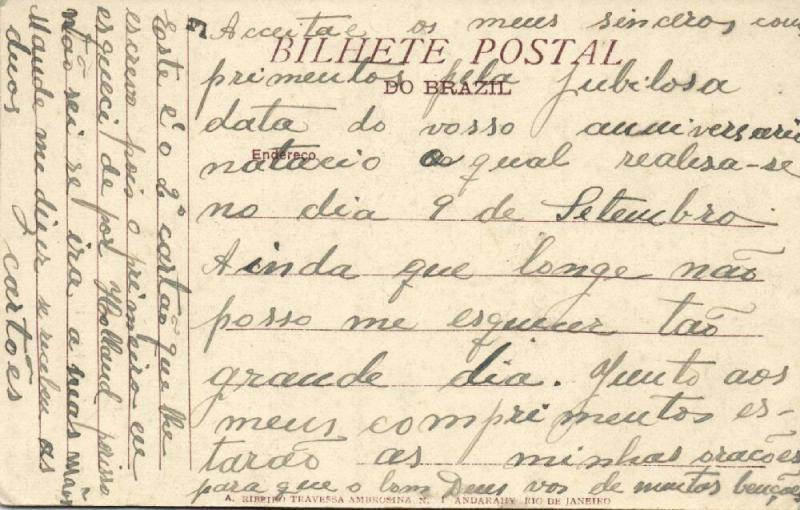 Acceitae os meus sinceros com
BILHETE POSTAL
primentos pela jubilosa
DO BRAZIL
data do vosso anniversario
Endereço
natacio o qual realisa-se
no dia 9 de Setembro.
Ainda que longe não
posso me esquecer tão
grande dia. Junto aos
meus comprimentos es-
tarão as minhas orações
para que o bom Deus vos de muitas benções
A. RIBEIRO TRAVESSA AMBROSINA N. 1 ANDARAHY RIO DE JANEIRO
Este é o 2º cartão que lhe
escrevo pois o primeiro eu
esqueci de por Holland porisso
não sei se ira a suas mãos
Mande me dizer se recebeu os
duos cartões